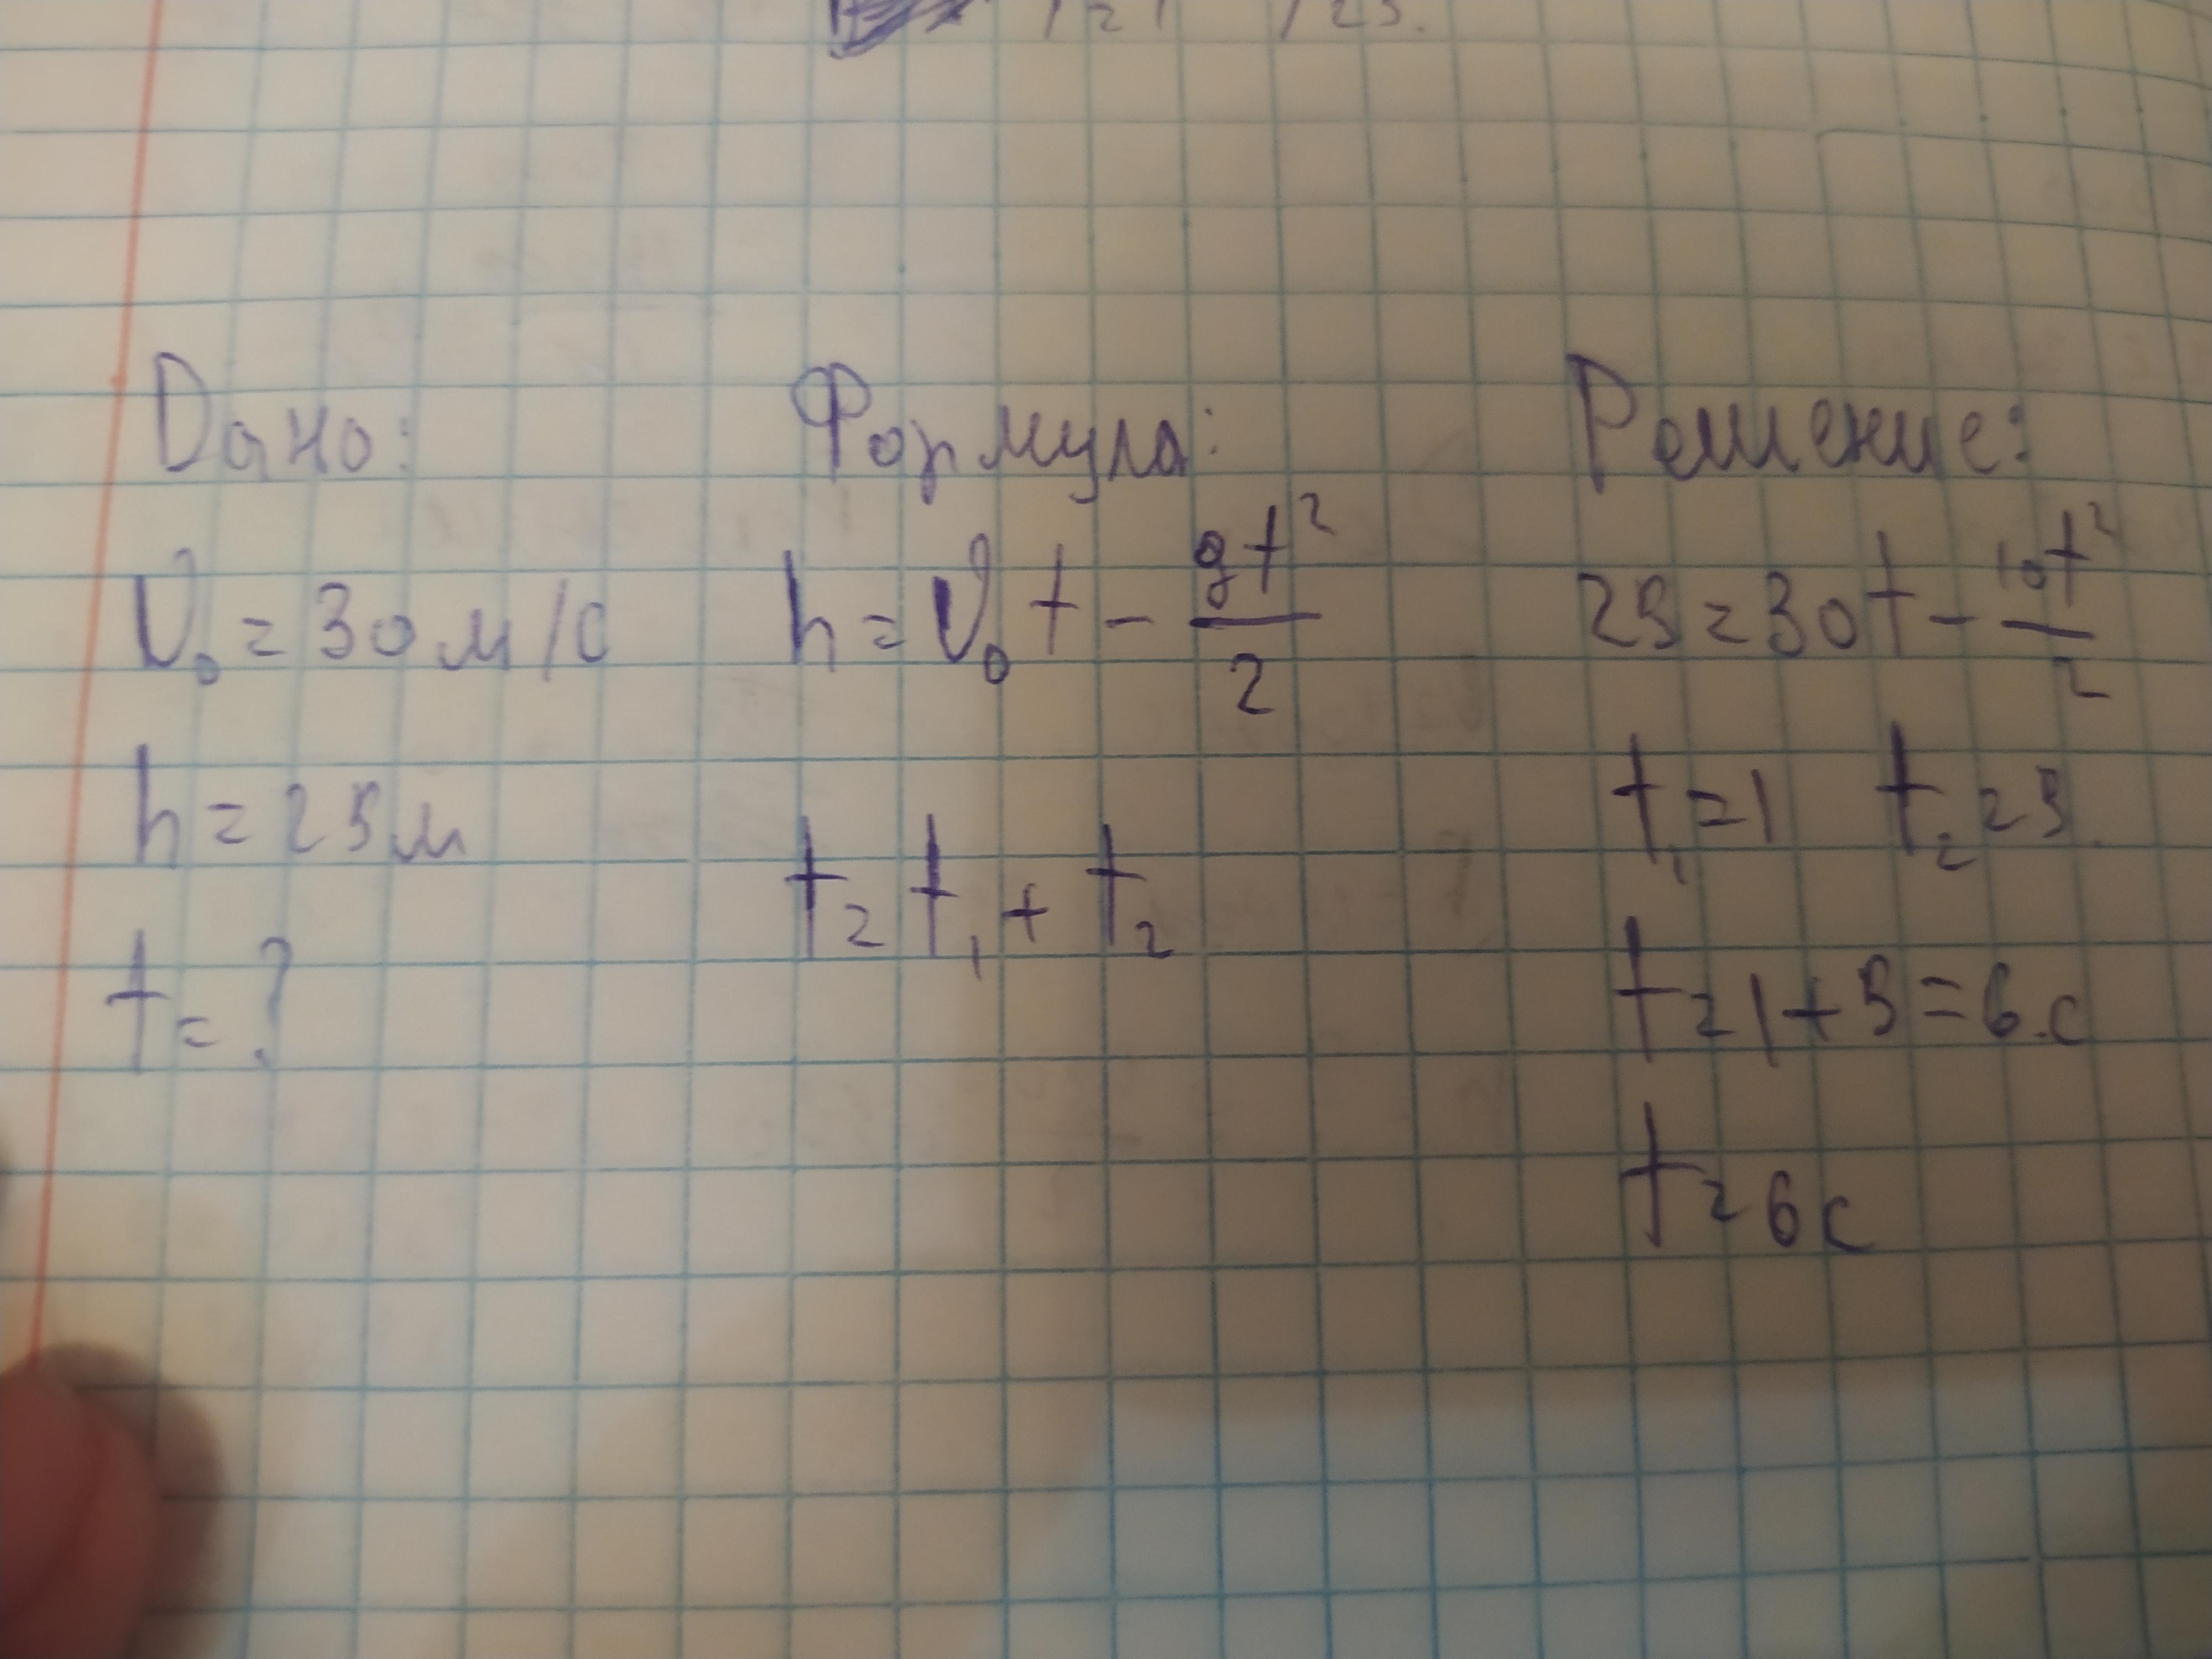 Дано:
V₀ = 30 м/с
h = 25 м
t = ?
Формула:
h = V₀t - gt²/2
t = t₁ + t₂
Решение:
25 = 30t - 10t²/2
t₁ = 1 t₂ = 5
t = 1 + 5 = 6 с
t = 6 с